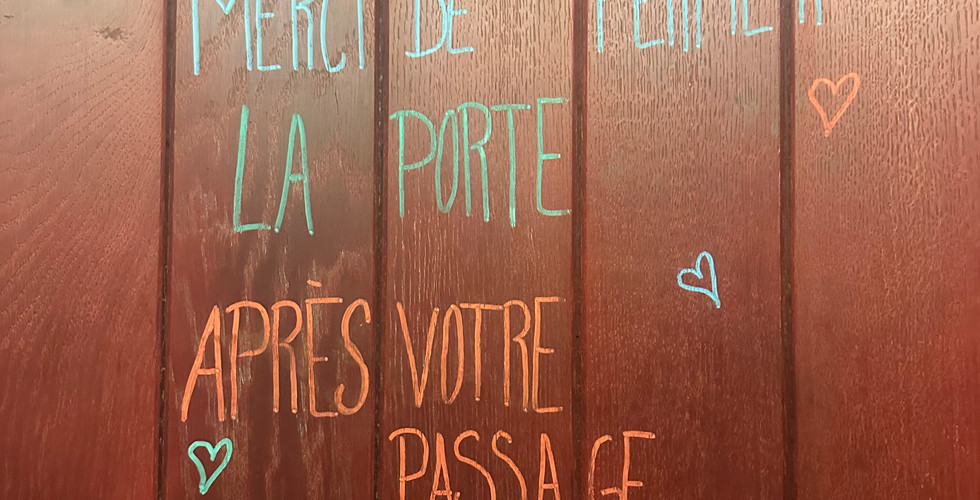 MERCI DE FERMER
LA PORTE
APRÈS VOTRE
PASSAGE